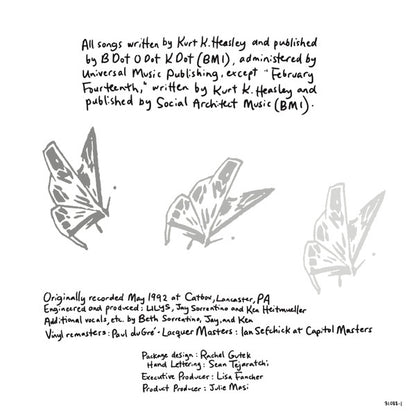 All songs written by Kurt K. Heasley and published
by B Dot O Dot K Dot (BMI), administered by
Universal Music Publishing, except "February
Fourteenth," written by Kurt K. Heasley and
published by Social Architect Music (BMI).
Originally recorded May 1992 at Catbox, Lancaster, PA
Engineered and produced: LILYS, Jay Sorrentino and Ken Heitmueller
Additional vocals, etc. by Beth Sorrentino, Jay, and Ken
Vinyl remasters: Paul duGré - Lacquer Masters: Ian Sefchick at Capitol Masters
Package design: Rachel Gutek
Hand Lettering: Sean Tejaratchi
Executive Producer: Lisa Fancher
Product Producer: Julie Masi